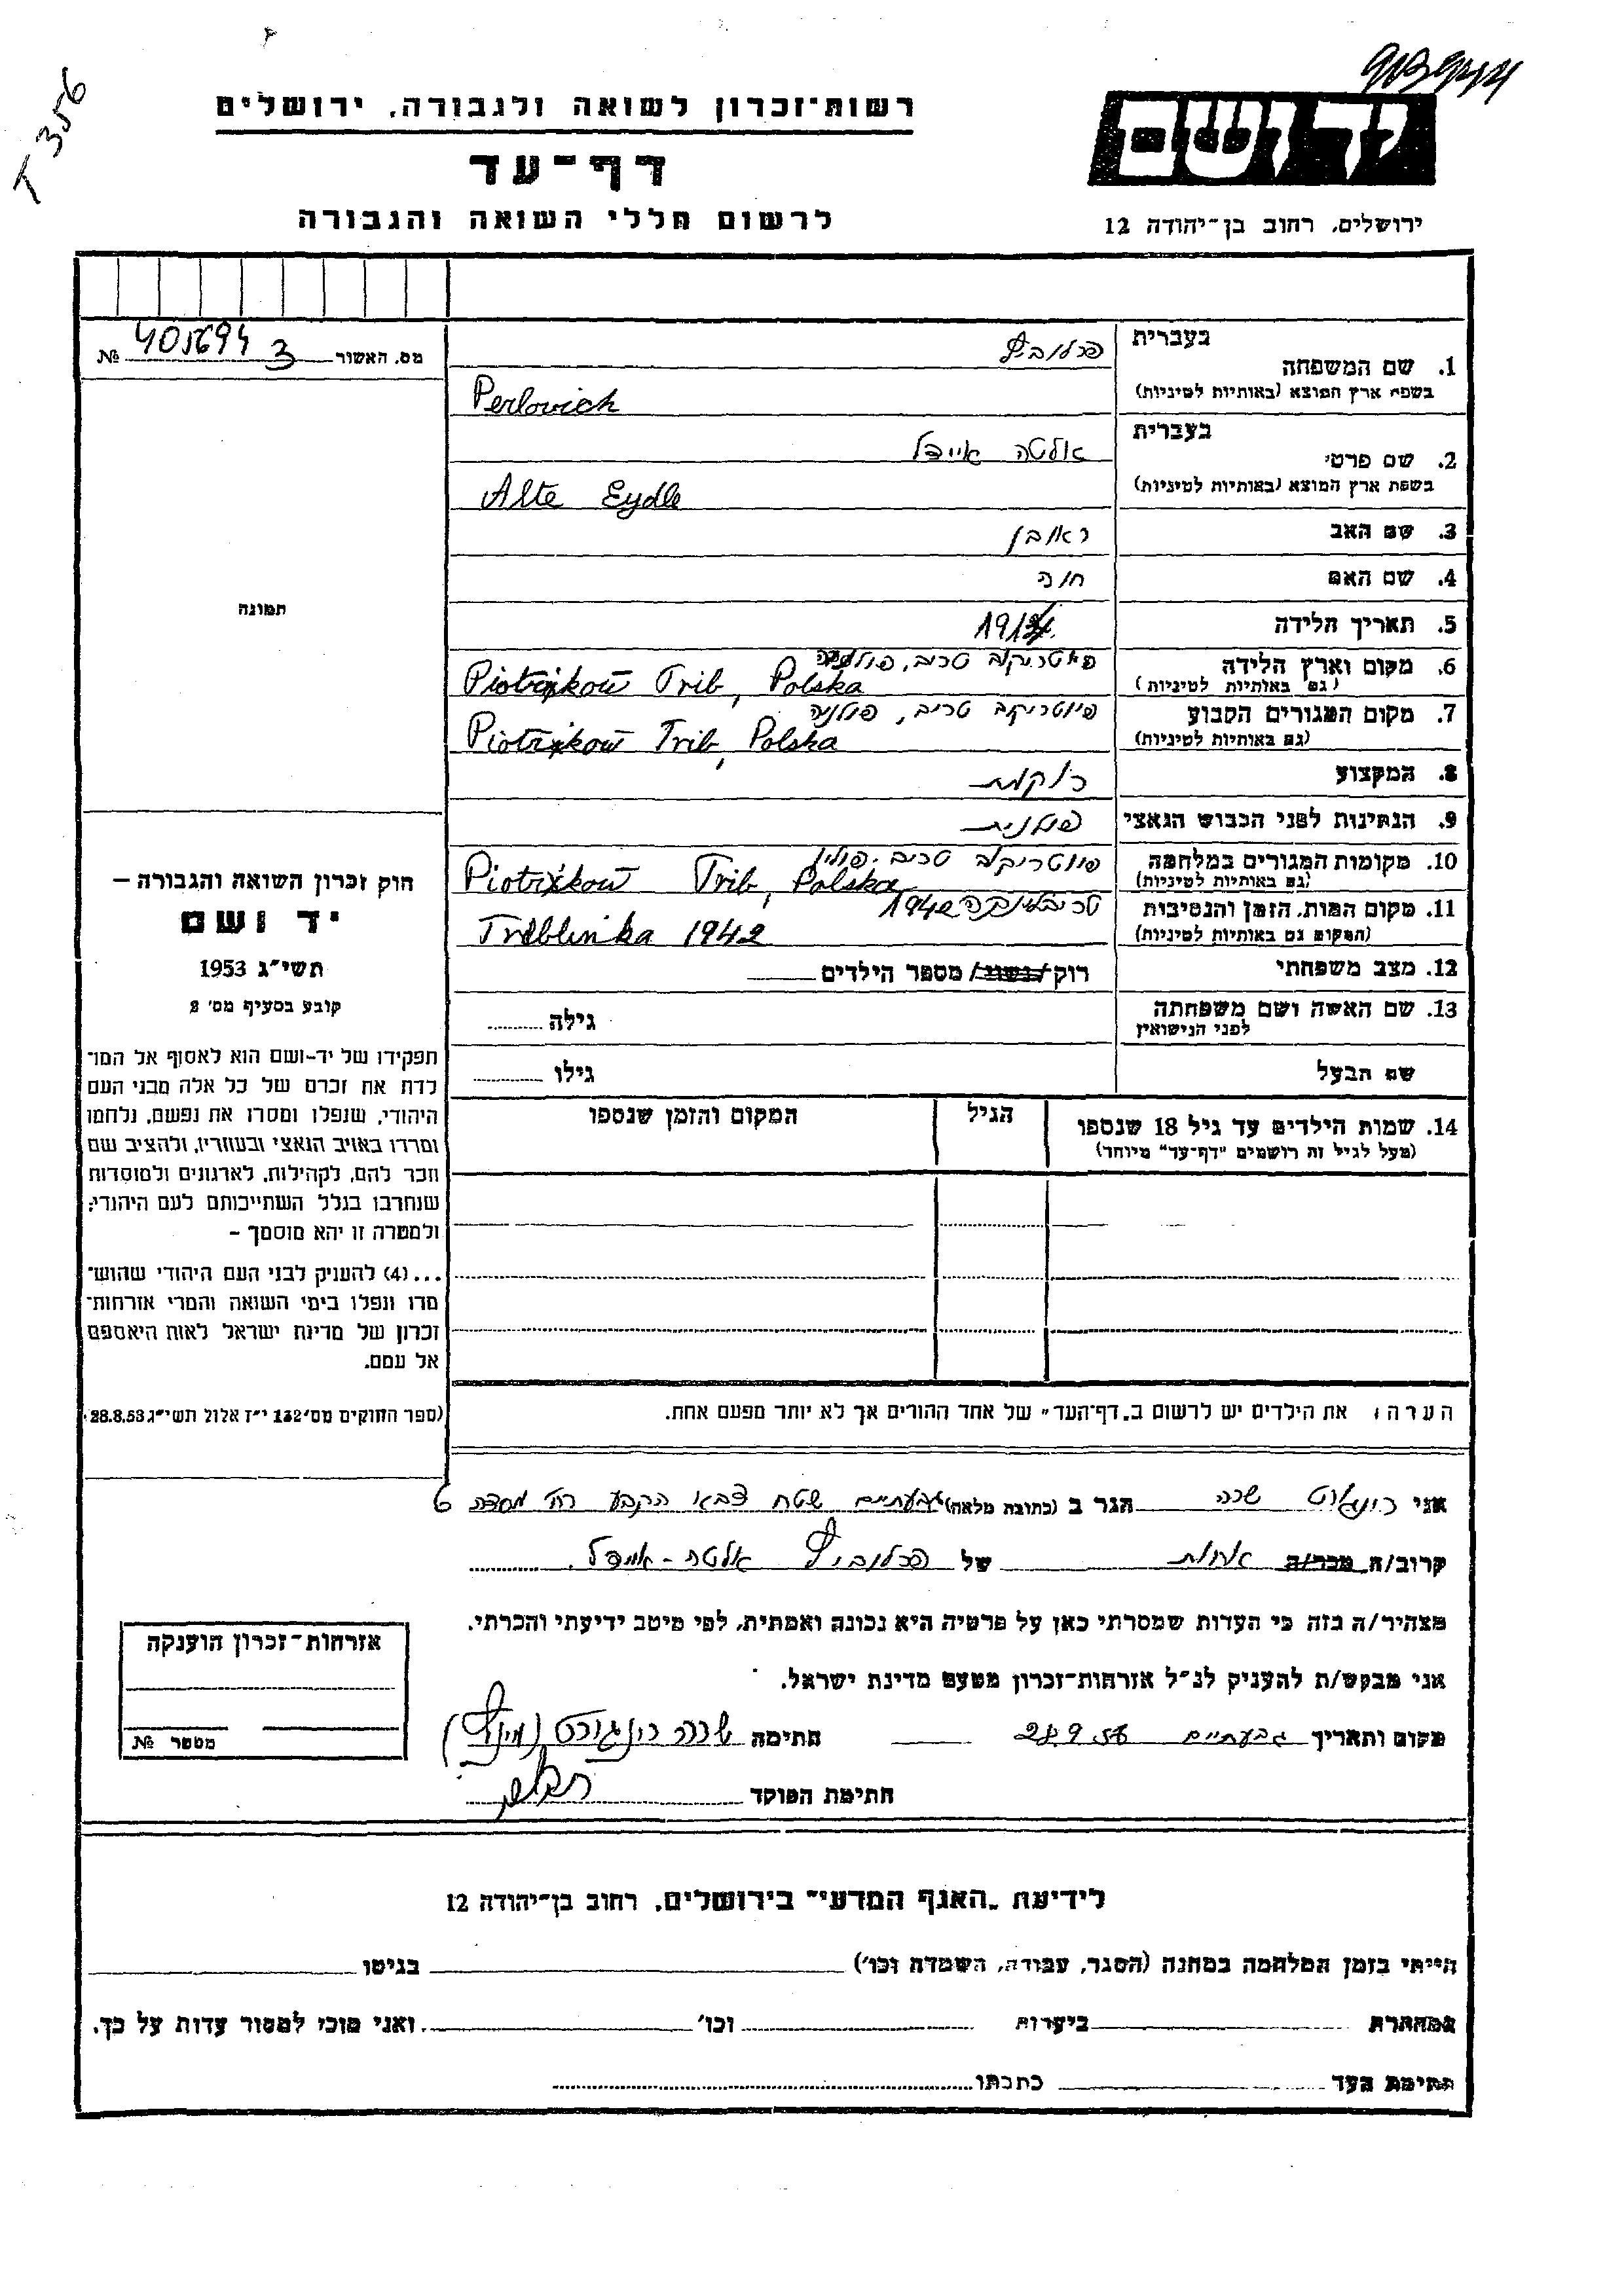 T 356
רשות־זכרון לשואה ולגבורה, ירושלים
דף־עד
לרשום חללי השואה והגבורה
יד ושם
ירושלים, רחוב בן־יהודה 12
מס. האשור 3 405694 №
תמונה
חוק זכרון השואה והגבורה –
יד ושם
תשי״ג 1953
קובע בסעיף מס׳ 2
תפקידו של יד-ושם הוא לאסוף אל המו־
לדת את זכרם של כל אלה מבני העם
היהודי, שנפלו ומסרו את נפשם, נלחמו
ומרדו באויב הנאצי ובעוזריו, ולהציב שם
וזכר להם, לקהילות, לארגונים ולמוסדות
שנחרבו בגלל השתייכותם לעם היהודי;
ולמטרה זו יהא מוסמך –
...(4) להעניק לבני העם היהודי שהוש־
מדו ונפלו בימי השואה והמרי אזרחות־
זכרון של מדינת ישראל לאות היאספם
אל עמם.
(ספר החוקים מס׳ 132 י״ז אלול תשי״ג 28.8.53)
בעברית פרלוביץ
1. שם המשפחה
בשפת ארץ המוצא (באותיות לטיניות) Perlovich
בעברית אלטה איידל
2. שם פרטי
בשפת ארץ המוצא (באותיות לטיניות) Alte Eydle
3. שם האב ראובן
4. שם האם חוה
5. תאריך הלידה
6. מקום וארץ הלידה פיוטריקוב טריב, פולניה
(גם באותיות לטיניות) Piotrkow Trib, Polska
7. מקום המגורים הקבוע פיוטריקוב טריב, פולניה
(גם באותיות לטיניות) Piotrkow Trib, Polska
8. המקצוע רוקחת
9. הנתינות לפני הכבוש הנאצי פולנית
10. מקומות המגורים במלחמה פיוטריקוב טריב. פולין
(גם באותיות לטיניות) Piotrkow Trib, Polska
11. מקום המות, הזמן והנסיבות טריבלינקה 1942
(המקום גם באותיות לטיניות) Treblinka 1942
12. מצב משפחתי רוק/נשוי/ מספר הילדים
13. שם האשה ושם משפחתה גילה
לפני הנישואין
שם הבעל גילו
14. שמות הילדים עד גיל 18 שנספו הגיל המקום והזמן שנספו
(מעל לגיל זה רושמים "דף־עד" מיוחד)
הערה: את הילדים יש לרשום ב"דף־העד" של אחד ההורים אך לא יותר מפעם אחת.
אני שרה הגר ב (כתובת מלאה) גבעתיים שטח צבא הקבע רח׳ מסדה 6
קרוב/ה מכר/ה אחות של פרלוביץ אלטה-איידל
מצהיר/ה בזה כי העדות שמסרתי כאן על פרטיה היא נכונה ואמתית, לפי מיטב ידיעתי והכרתי.
אני מבקש/ת להעניק לנ״ל אזרחות־זכרון מטעם מדינת ישראל.
מקום ותאריך גבעתיים 28.9.56 חתימה שרה
חתימת הפוקד
אזרחות־זכרון הוענקה
מספר №
לידיעת "האגף המדעי" בירושלים, רחוב בן־יהודה 12
הייתי בזמן המלחמה במחנה (הסגר, עבודה, השמדה וכו׳) בגיטו
במחתרת ביערות וכו׳ ואני מוכן למסור עדות על כך.
חתימת העד כתבתו